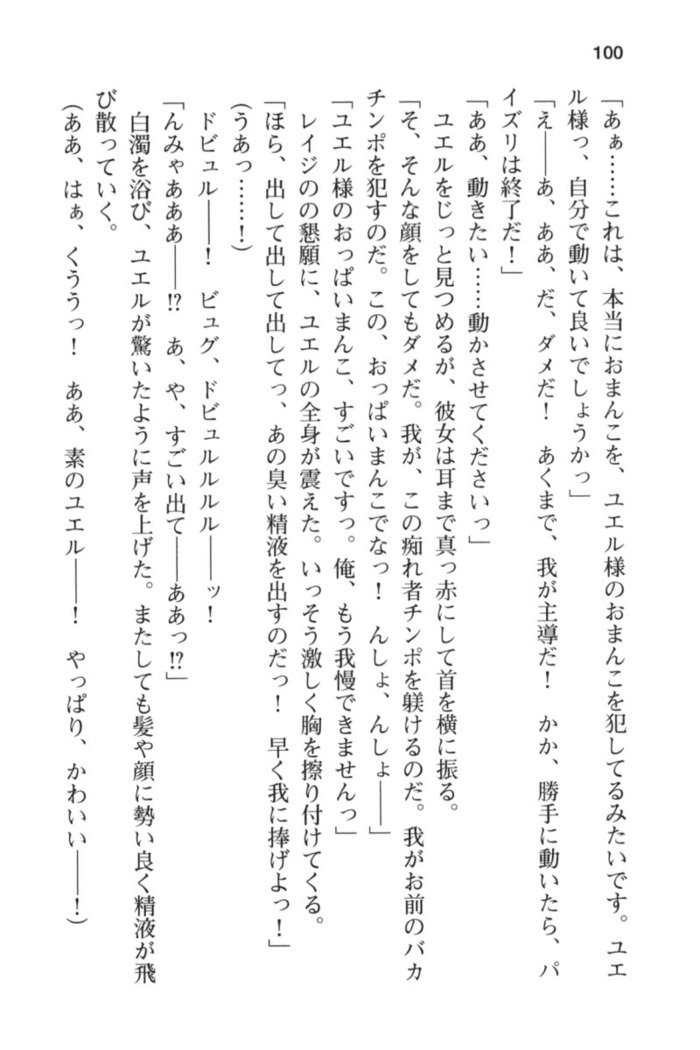 100
「あぁ……これは、本当におまんこを、ユエル様のおまんこを犯してるみたいです。ユエ
ル様っ、自分で動いて良いでしょうかっ」
「え――あ、ああ、だ、ダメだ！　あくまで、我が主導だ！　かか、勝手に動いたら、パ
イズリは終了だ！」
「ああ、動きたい……動かさせてくださいっ」
　ユエルをじっと見つめるが、彼女は耳まで真っ赤にして首を横に振る。
「そ、そんな顔をしてもダメだ。我が、この痴れ者チンポを躾けるのだ。我がお前のバカ
チンポを犯すのだ。この、おっぱいまんこでなっ！　んしょ、んしょ――」
「ユエル様のおっぱいまんこ、すごいですっ。俺、もう我慢できませんっ」
　レイジのの懇願に、ユエルの全身が震えた。いっそう激しく胸を擦り付けてくる。
「ほら、出して出して出してっ、あの臭い精液を出すのだっ！　早く我に捧げよっ！」
（うあっ……！）
　ドビュル――！　ビュグ、ドビュルルルル――ッ！
「んみゃあああ――!?　あ、や、すごい出て――ああっ!?」
　白濁を浴び、ユエルが驚いたように声を上げた。またしても髪や顔に勢い良く精液が飛
び散っていく。
（ああ、はぁ、くううっ！　ああ、素のユエル――！　やっぱり、かわいい――！）